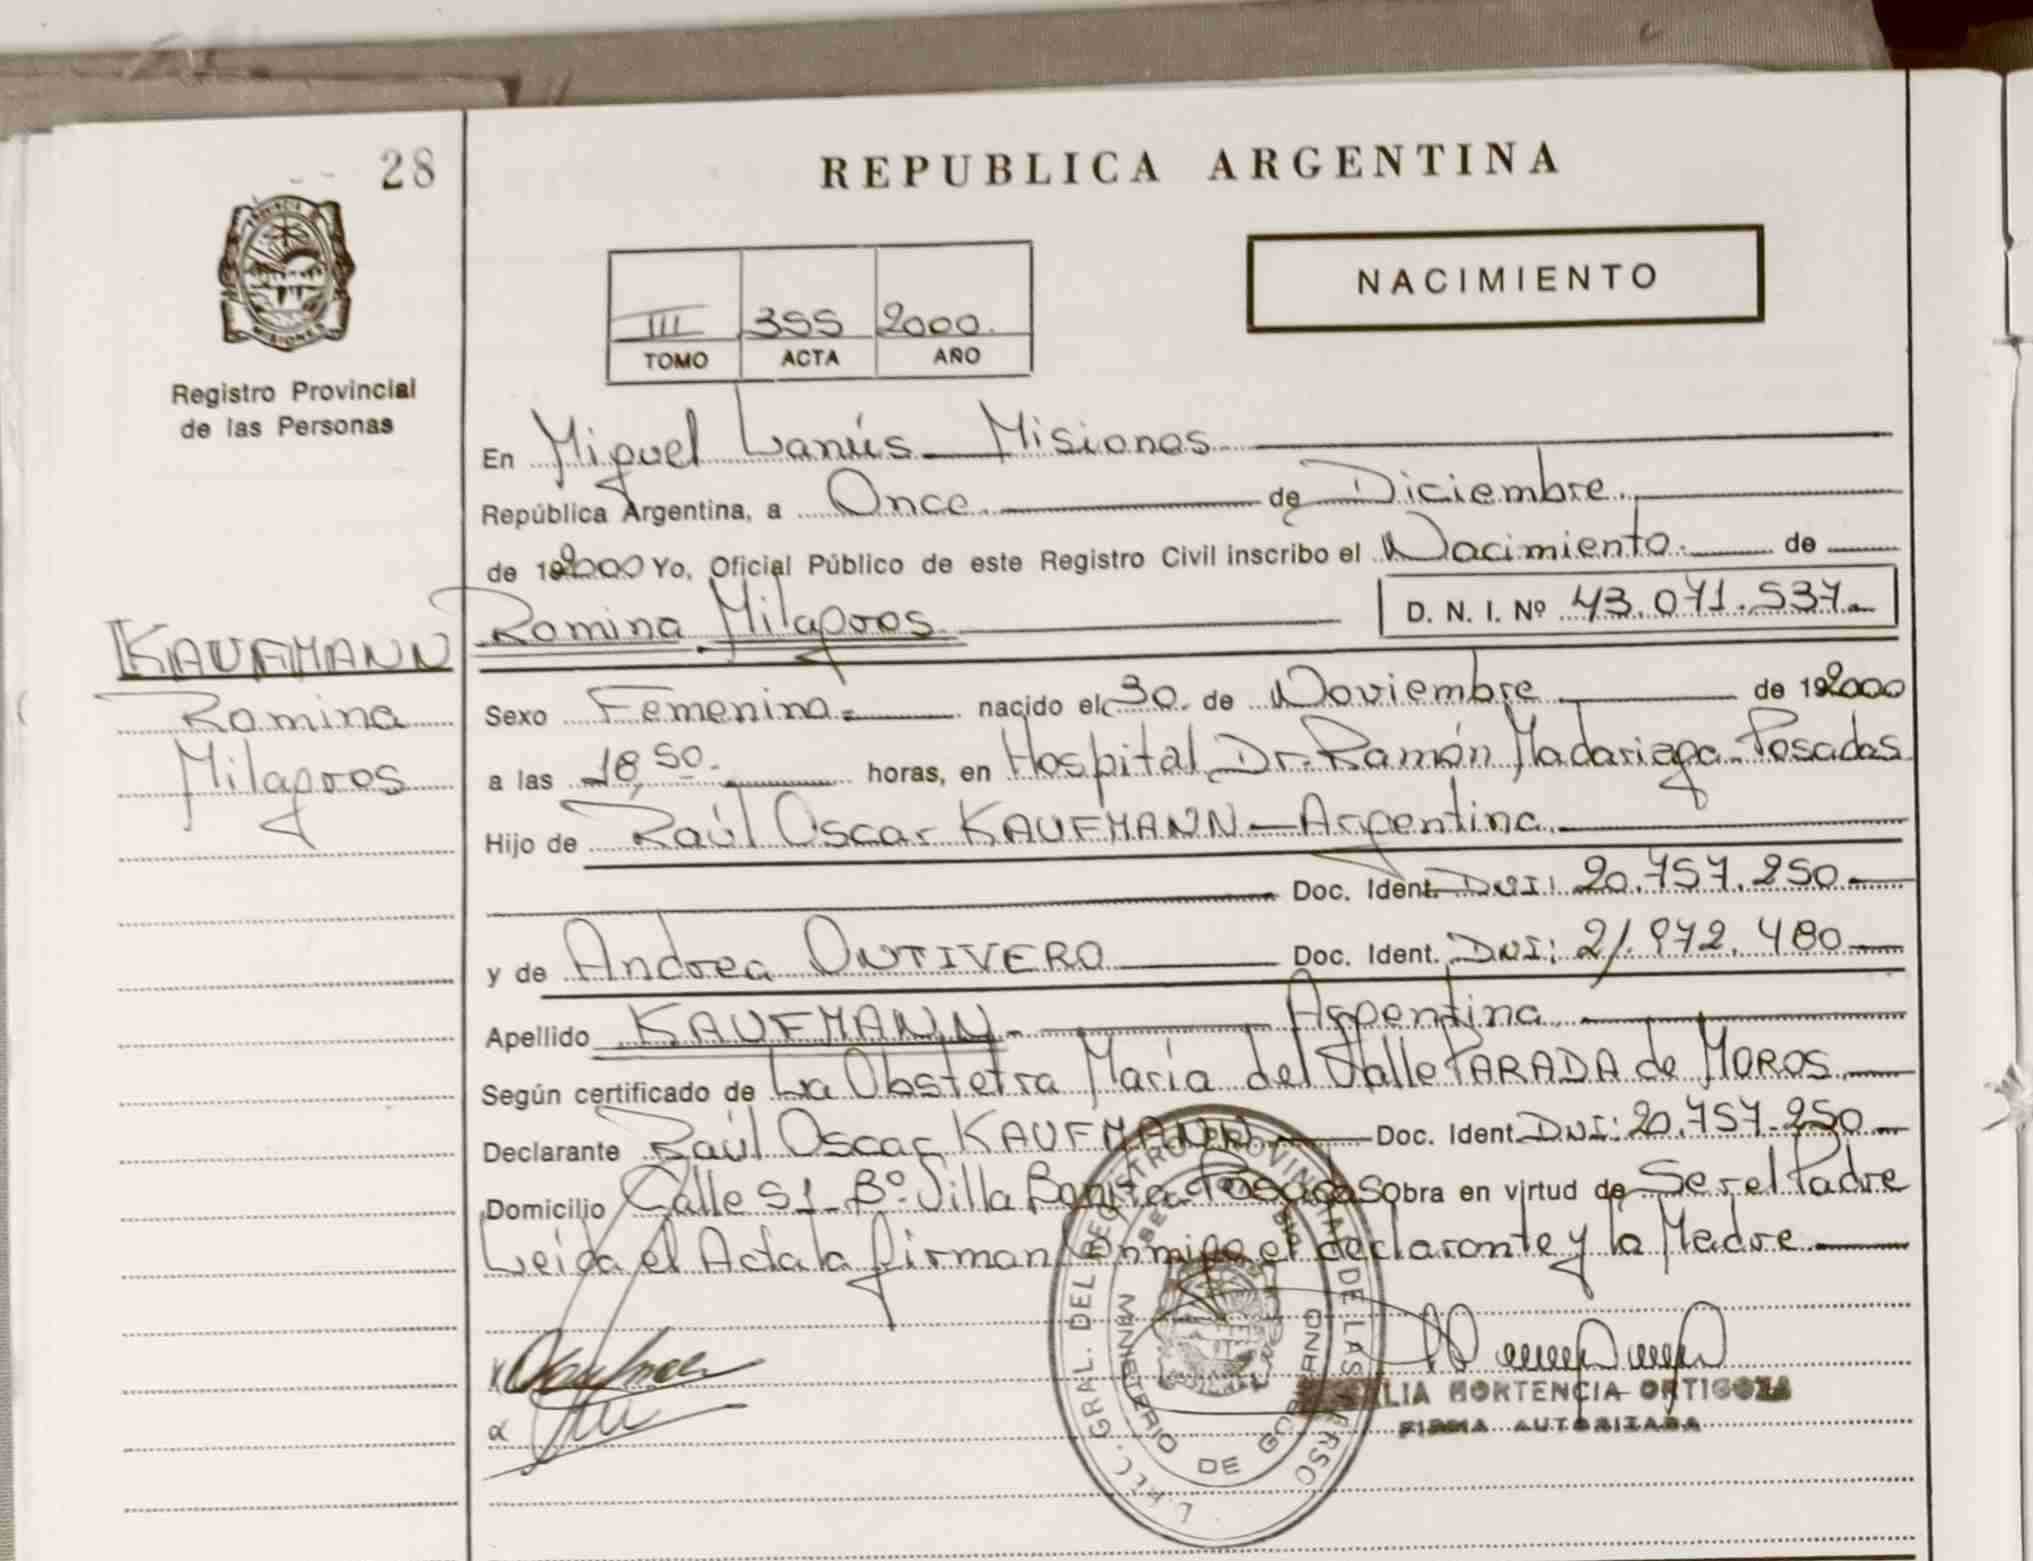 28
REPUBLICA ARGENTINA
PROVINCIA DE
MISIONES
Registro Provincial
de las Personas
NACIMIENTO
III 355 2000.
TOMO ACTA AÑO
En Miguel Lanús - Misiones
República Argentina, a Once de Diciembre.
de 192000 Yo, Oficial Público de este Registro Civil inscribo el Nacimiento. de
Romina Milagros D. N. I. Nº 43.071.537.
KAUFMANN
Romina
Milagros
Sexo Femenino. nacido el 30. de Noviembre de 192000
a las 18,50. horas, en Hospital Dr. Ramón Madariaga - Posadas
Hijo de Raúl Oscar KAUFMANN - Argentina.
Doc. Ident. DNI: 20.757.250
y de Andrea ONTIVERO Doc. Ident. DNI: 21.972.480
Apellido KAUFMANN - Argentina.
Según certificado de La Obstetra María del Valle PARADA de MOROS.
Declarante Raúl Oscar KAUFMANN Doc. Ident. DNI: 20.757.250
Domicilio Calle 51 - Bº. Villa Bonita - Posadas Obra en virtud de Ser el Padre
Leída el Acta la firman Conmigo el declarante y la Madre
GRAL. DEL REGISTRO PROVINCIAL DE LAS PERSO
MINISTERIO DE GOBIERNO
HORTENCIA ORTIGOZA
FIRMA AUTORIZADA